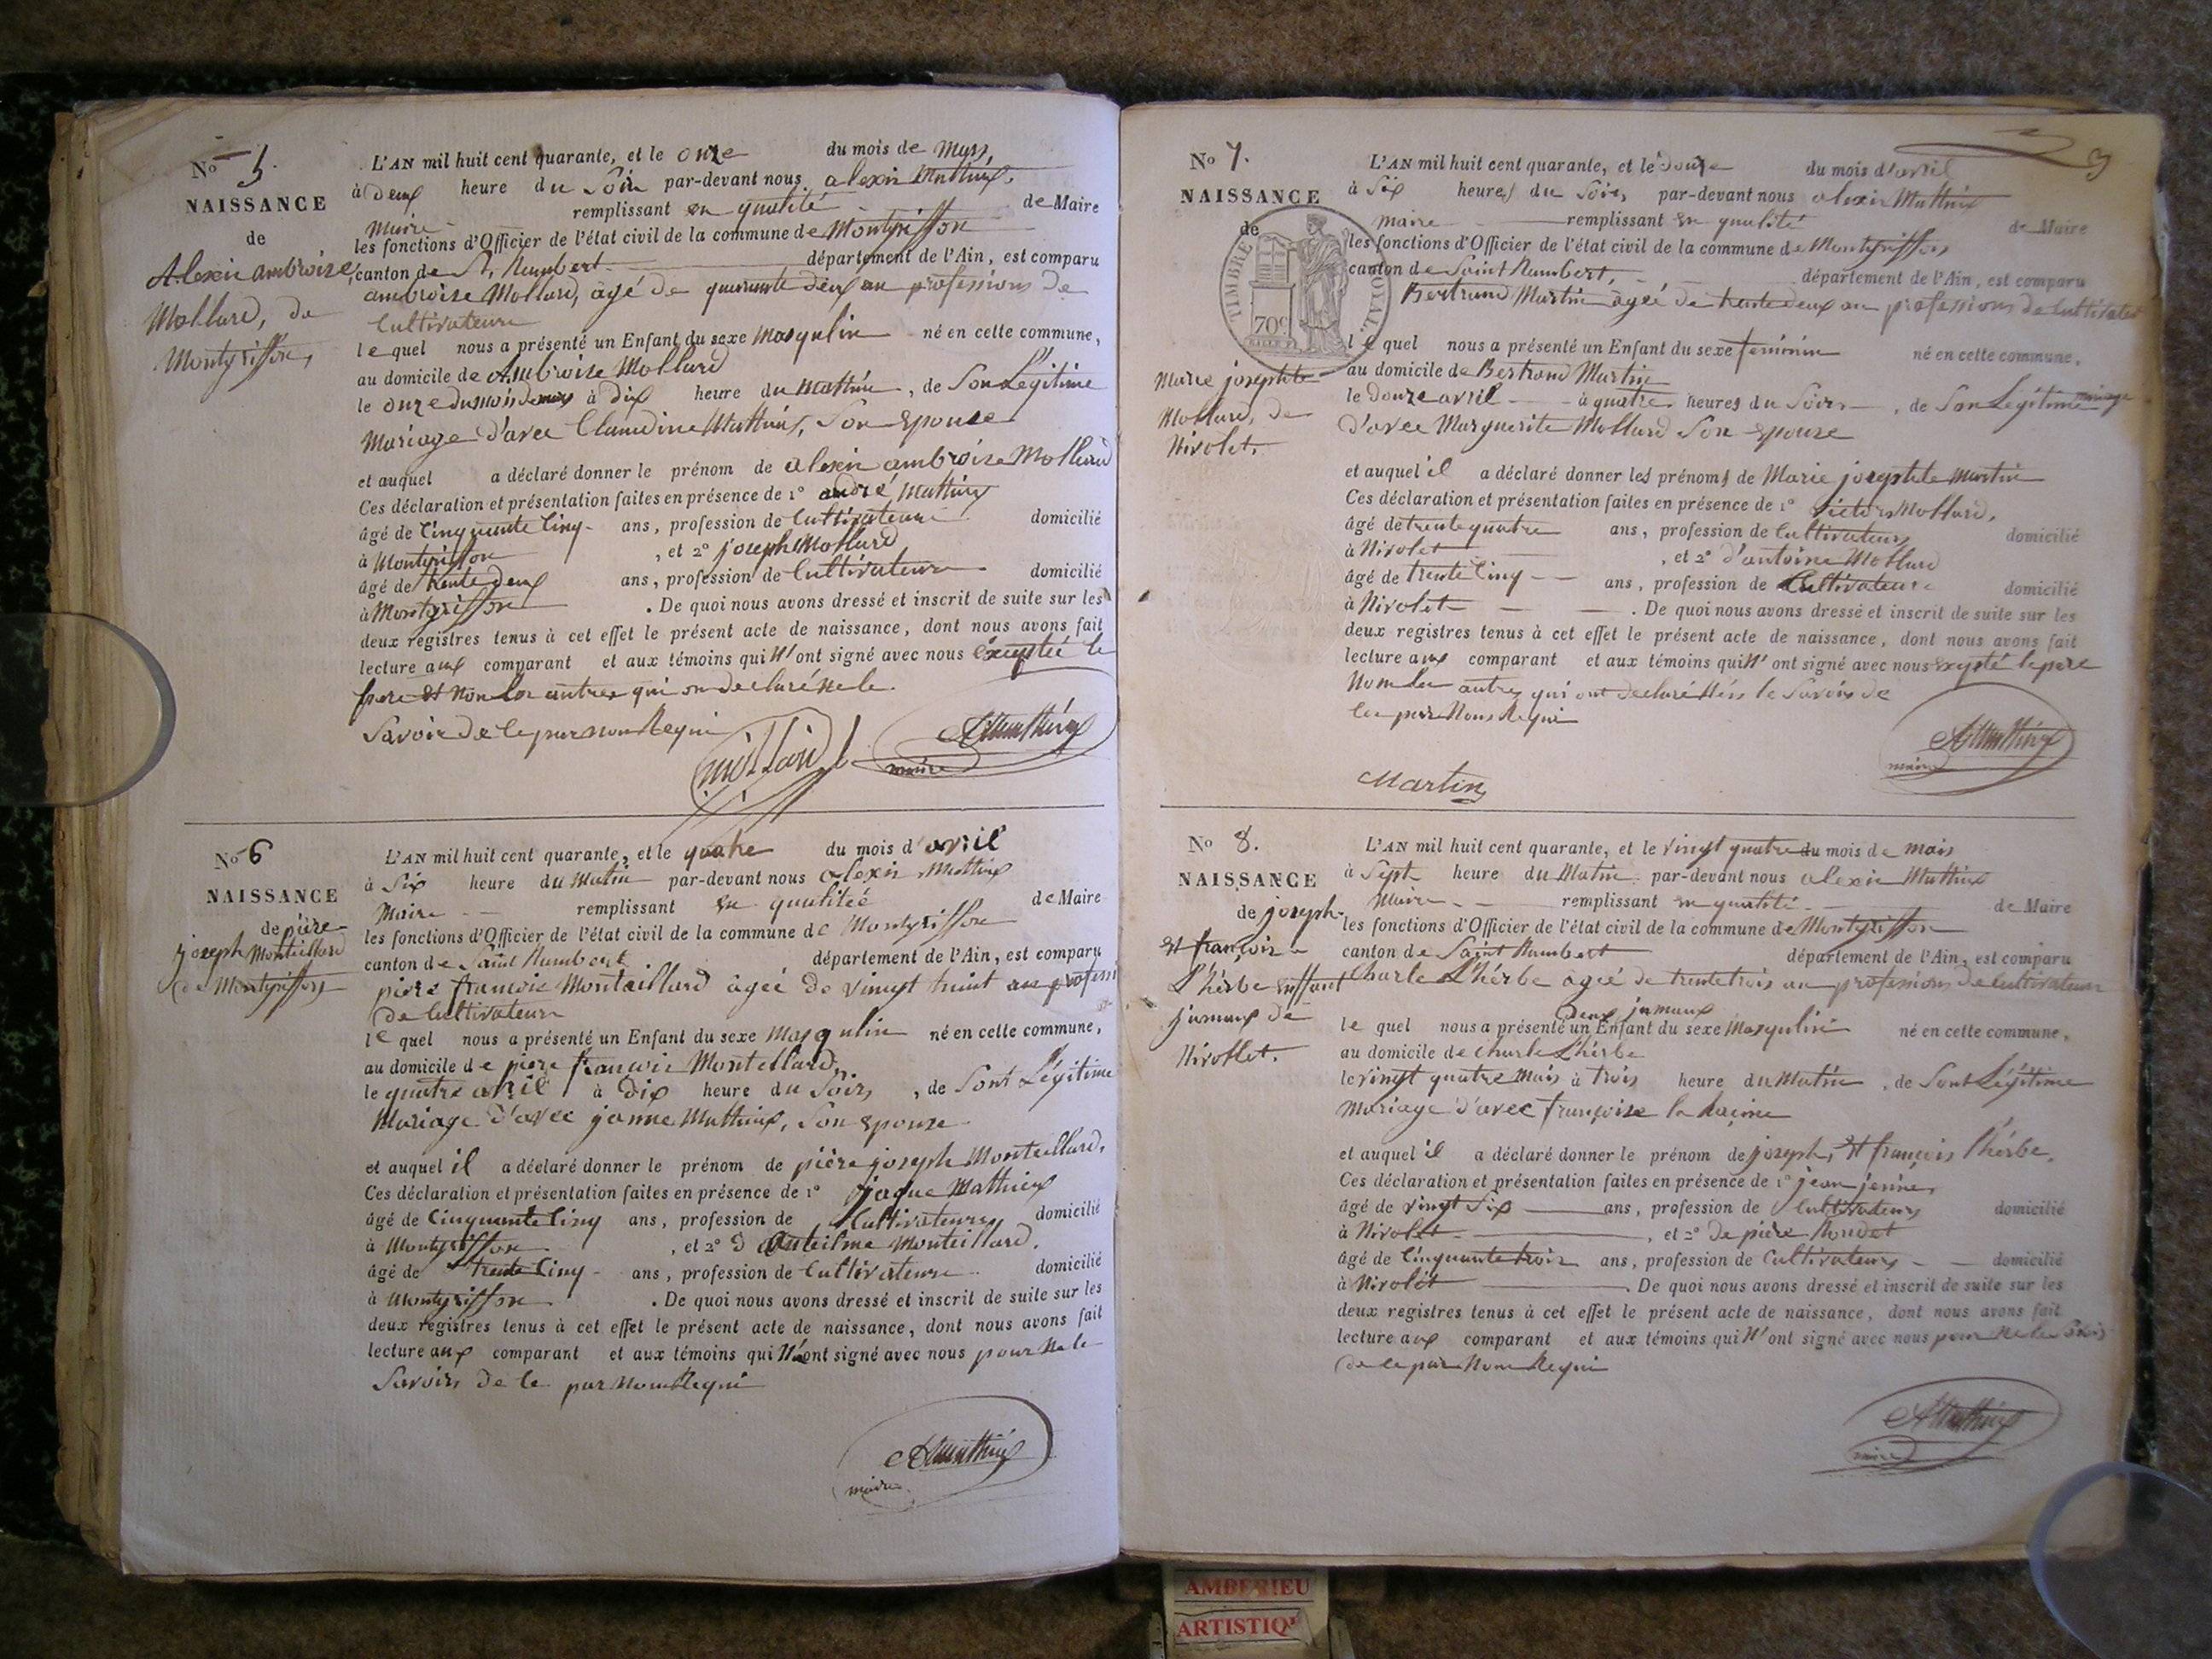 No 5.
NAISSANCE
de
Alexis ambroise
Mollard, de
Montgriffon,
L'AN mil huit cent quarante, et le onze du mois de Mars,
à deux heure du Soir par-devant nous alexis Mathieux
Maire remplissant en qualité de Maire
les fonctions d'Officier de l'état civil de la commune de Montgriffon
canton de St Rambert département de l'Ain, est comparu
ambroise Mollard, âgé de quarante deux an professions de
Cultivateure
le quel nous a présenté un Enfant du sexe Masqulin né en cette commune,
au domicile de Ambroise Mollard
le onze du mois de mars à dix heure du Mattin, de Son Légitime
Mariage d'avec Claudine Mathieux, Son Epouse
et auquel a déclaré donner le prénom de alexis ambroise Mollard
Ces déclaration et présentation faites en présence de 1° andré Mathieux
âgé de Cinquante Cinq ans, profession de Cultivateure domicilié
à Montgriffon, et 2° joseph Mollard
âgé de trente deux ans, profession de Cultivateure domicilié
à Montgriffon. De quoi nous avons dressé et inscrit de suite sur les
deux registres tenus à cet effet le présent acte de naissance, dont nous avons fait
lecture aux comparant et aux témoins qui N'ont signé avec nous éxceptée le
pere et non les autres qui on declaré ne le
Savoir de le par nous Requi
mollard
AMathieux
maire
No 6
NAISSANCE
de pière
joseph Monteillard
de Montgriffon
L'AN mil huit cent quarante, et le quatre du mois d'avril
à Six heure du Matin par-devant nous alexis Mathieux
Maire remplissant en qualitéé de Maire
les fonctions d'Officier de l'état civil de la commune de Montgriffon
canton de Saint Rambert département de l'Ain, est comparu
pière francois Monteillard âgée de vingt huit an professi
de Cultivateure
le quel nous a présenté un Enfant du sexe Masqulin né en cette commune,
au domicile de piere francois Monteillard,
le quatre avril à Dix heure du Soirs, de Sont Légitime
Mariage d'avec janne Mathieux, Son epouse
et auquel il a déclaré donner le prénom de pière joseph Monteillard,
Ces déclaration et présentation faites en présence de 1° jaque Mathieux
âgé de Cinquante Cinq ans, profession de Cultivateure domicilié
à Montgriffon, et 2° d'Anteilme Monteillard.
âgé de trente Cinq ans, profession de Cultivateure domicilié
à Montgriffon. De quoi nous avons dressé et inscrit de suite sur les
deux registres tenus à cet effet le présent acte de naissance, dont nous avons fait
lecture aux comparant et aux témoins qui N'ont signé avec nous pour ne le
Savoirs de le par nous Requi
AMathieux
maire
No 7.
NAISSANCE
de
TIMBRE ROYAL.
70c
Marie josephte
Mollard, de
Nivolet.
L'AN mil huit cent quarante, et le douze du mois d'avril
à Six heures du Soir, par-devant nous alexis Mathieux
maire remplissant en qualité de Maire
les fonctions d'Officier de l'état civil de la commune de Montgriffon
canton de Saint Rambert, département de l'Ain, est comparu
Bertrand Martin ageé de trente deux an professions de Cultivateur
le quel nous a présenté un Enfant du sexe feminin né en cette commune,
au domicile de Bertrand Martin
le douze avril à quatre heures du Soirs, de Son Légitime mariage
d'avec Marguerite Mollard Son epouse
et auquel il a déclaré donner les prénoms de Marie josephte Martin
Ces déclaration et présentation faites en présence de 1° Victors Mollard,
âgé de trente quatre ans, profession de Cultivateurs domicilié
à Nivolet, et 2° d'antoine Mollard
âgé de trente Cinq ans, profession de Cultivateure domicilié
à Nivolet. De quoi nous avons dressé et inscrit de suite sur les
deux registres tenus à cet effet le présent acte de naissance, dont nous avons fait
lecture aux comparant et aux témoins qui N'ont signé avec nous exepté le pere
Nom les autres qui ont declaré le Savoirs de
le par Nous Requi
AMathieux
maire
Martin
No 8.
NAISSANCE
de joseph
et françois
L'hérbe enffant
jumaux de
Nivollet.
L'AN mil huit cent quarante, et le vingt quatre du mois de mais
à Sept heure du Matin par-devant nous alexis Mathieux
Maire remplissant en qualité de Maire
les fonctions d'Officier de l'état civil de la commune de Montgriffon
canton de Saint Rambert département de l'Ain, est comparu
Charle L'hérbe ageé de trente trois an professions de Cultivateure
Deux jumaux
le quel nous a présenté un Enfant du sexe Masqulin né en cette commune,
au domicile de charle L'hérbe
le vingt quatre mais à trois heure du Matin, de Sont Légitime
Mariage d'avec françoise la
et auquel il a déclaré donner le prénom de joseph, et françois l'hérbe,
Ces déclaration et présentation faites en présence de 1° jean jenine,
âgé de vingt Six ans, profession de Cultivateurs domicilié
à Nivolet, et 2° De pière
âgé de Cinquante trois ans, profession de Cultivateurs domicilié
à Nivolet. De quoi nous avons dressé et inscrit de suite sur les
deux registres tenus à cet effet le présent acte de naissance, dont nous avons fait
lecture aux comparant et aux témoins qui N'ont signé avec nous pour ne le
de le par Nous Requi
AMathieux
maire
AMBERIEU
ARTISTIQ